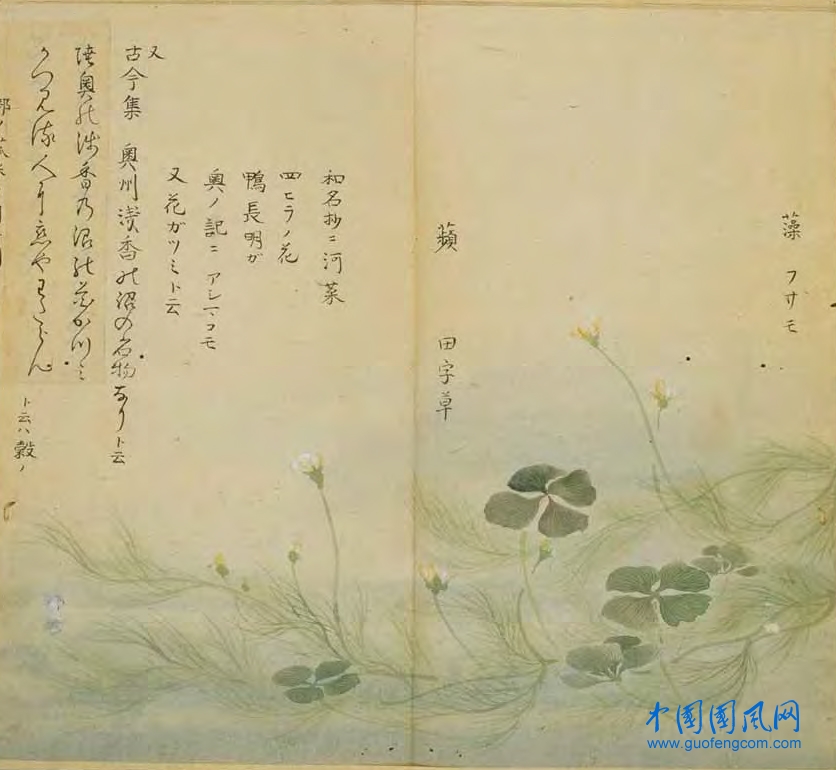 藻 フサモ
蘋 田字草
和名抄ニ河菜
四ヒラノ花
鴨長明ガ
奥ノ記ニ アシマコモ
又花ガツミト云
又
古今集 奥州淺香の沼の名物なりト云
陸奥の浅香乃沼の花かつミ
かつ見る人に恋や
ト云ハ穀ノ
中国国风网
www.guofengcom.com